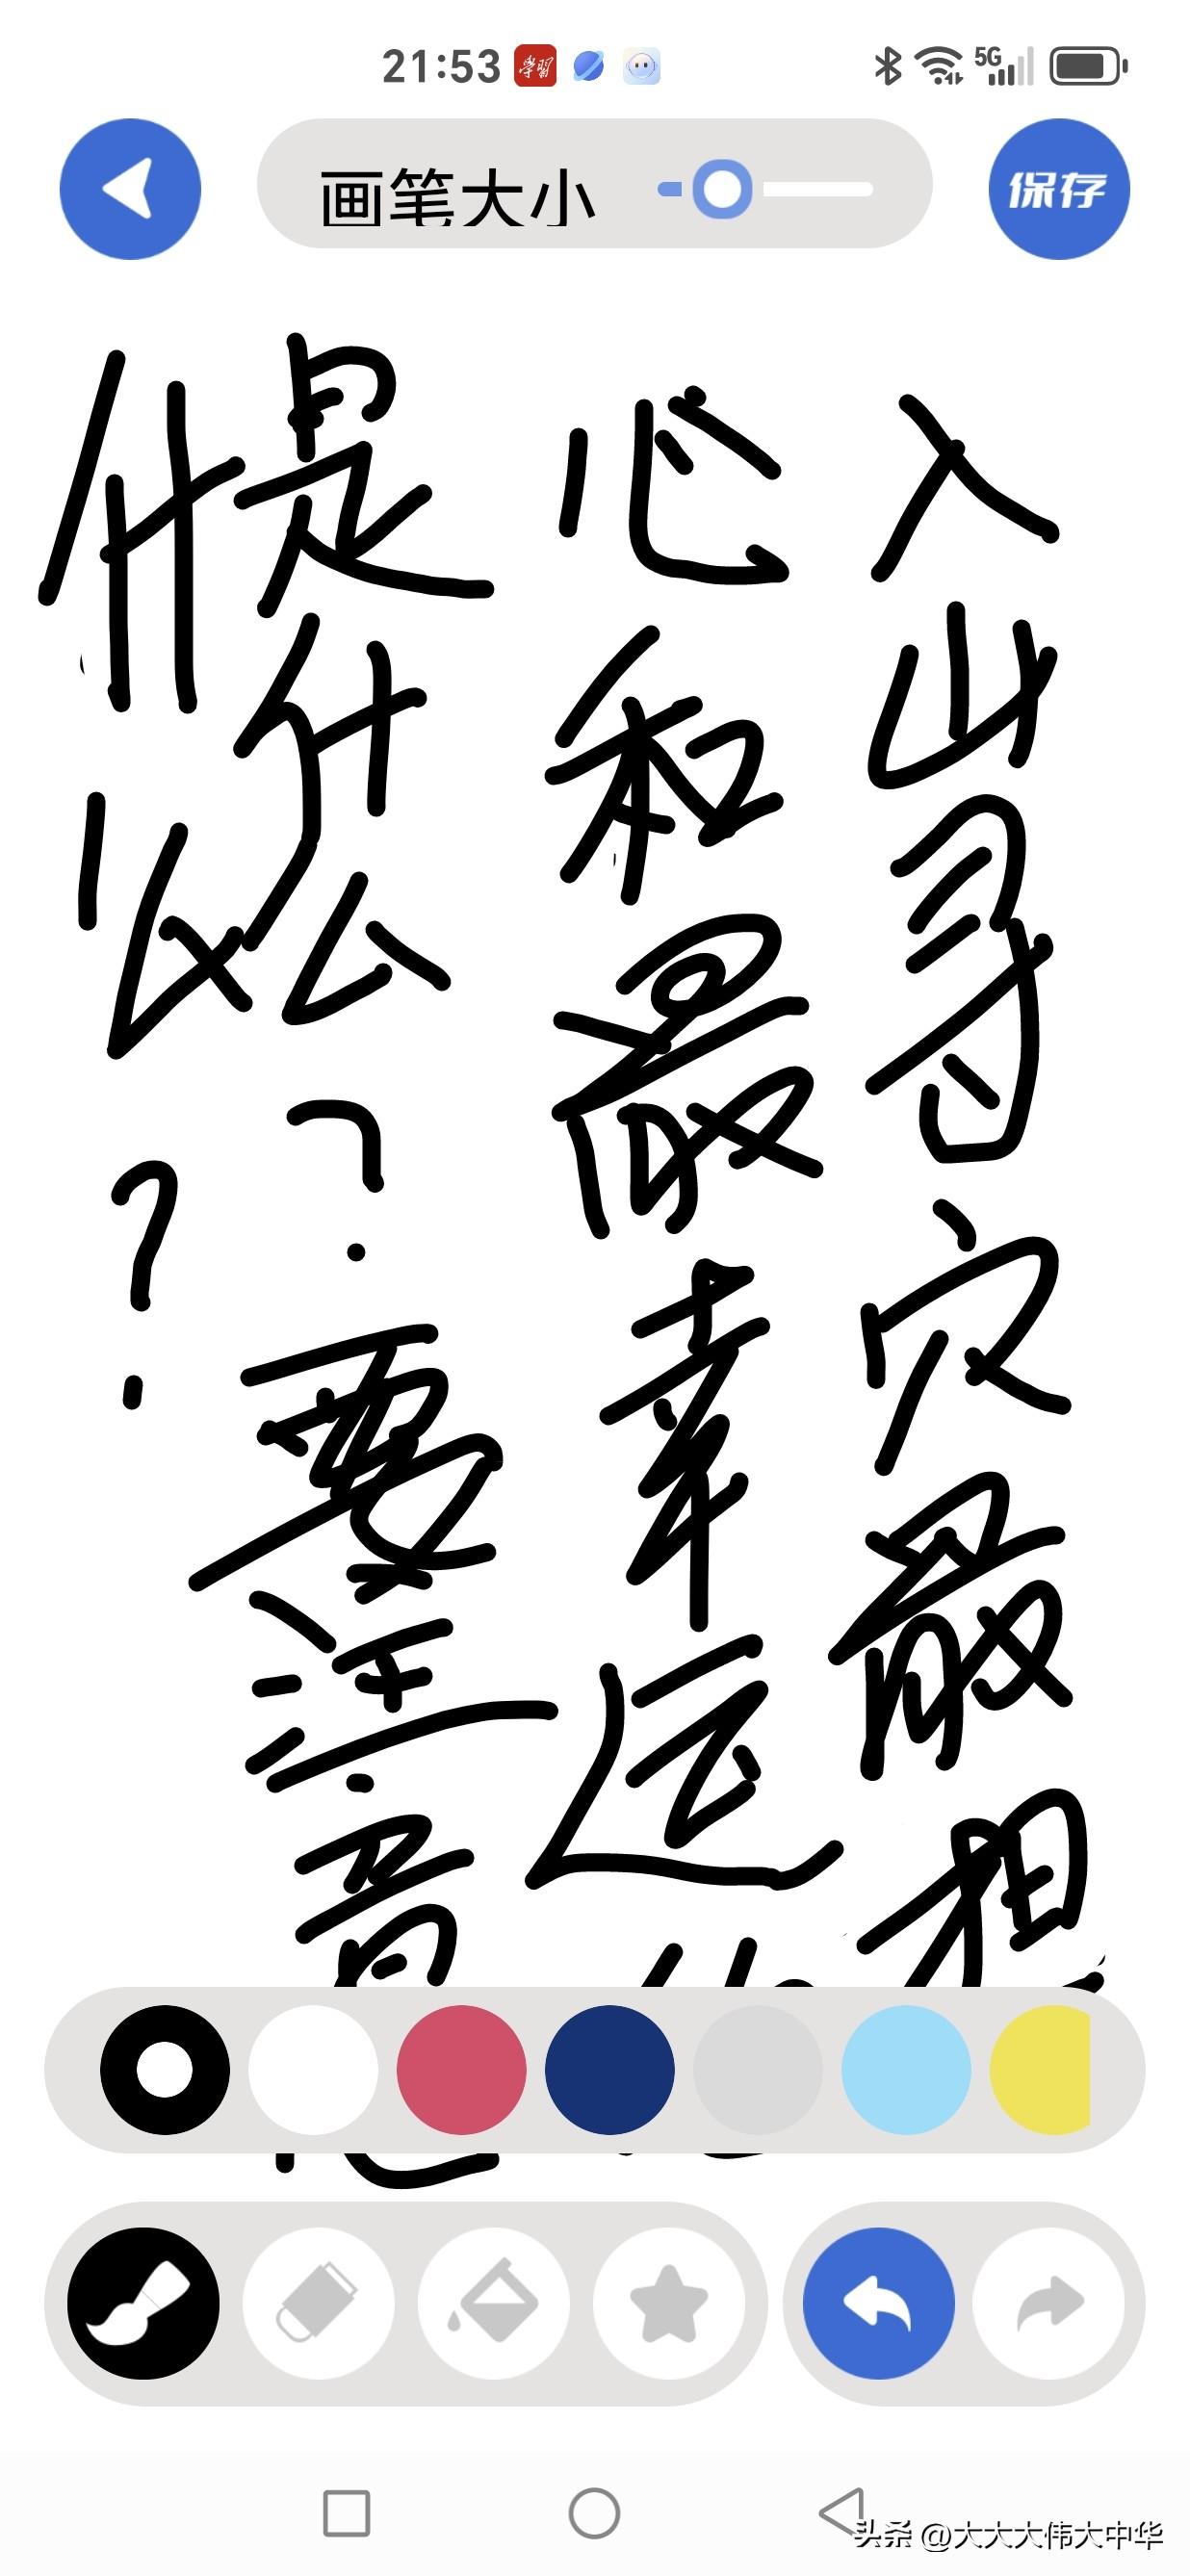 21:53
5G
画笔大小
保存
入山寻穴最担
心和最幸运的
是什么?要注意
什么?
头条 @大大大伟大中华